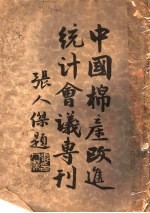 中國棉產改進
統计會議專刊
張人傑題